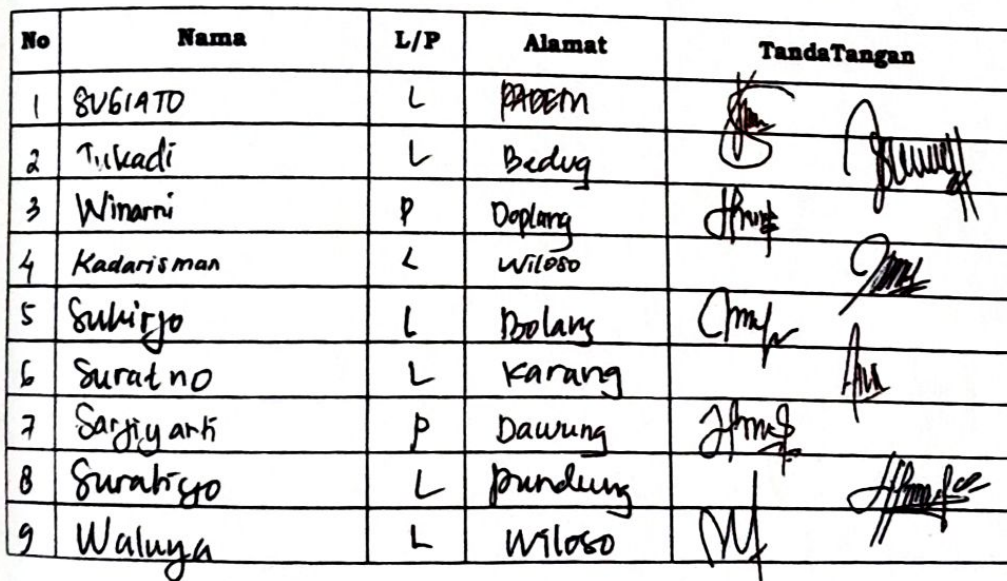 No Nama L/P Alamat TandaTangan
1 SUGIATO L PADEM
2 Tukadi L Bedug
3 Winarni P Doplang
4 Kadarisman L Wiloso
5 Sukirjo L Bolang
6 Suratno L Karang
7 Sarjiyarti P Dawung
8 L Pundung
9 Waluya L Wiloso